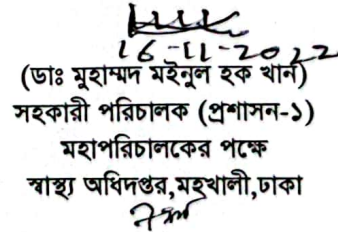 16-11-2022
(ডাঃ মুহাম্মদ মইনুল হক খান)
সহকারী পরিচালক (প্রশাসন-১)
মহাপরিচালকের পক্ষে
স্বাস্থ্য অধিদপ্তর,মহখালী,ঢাকা